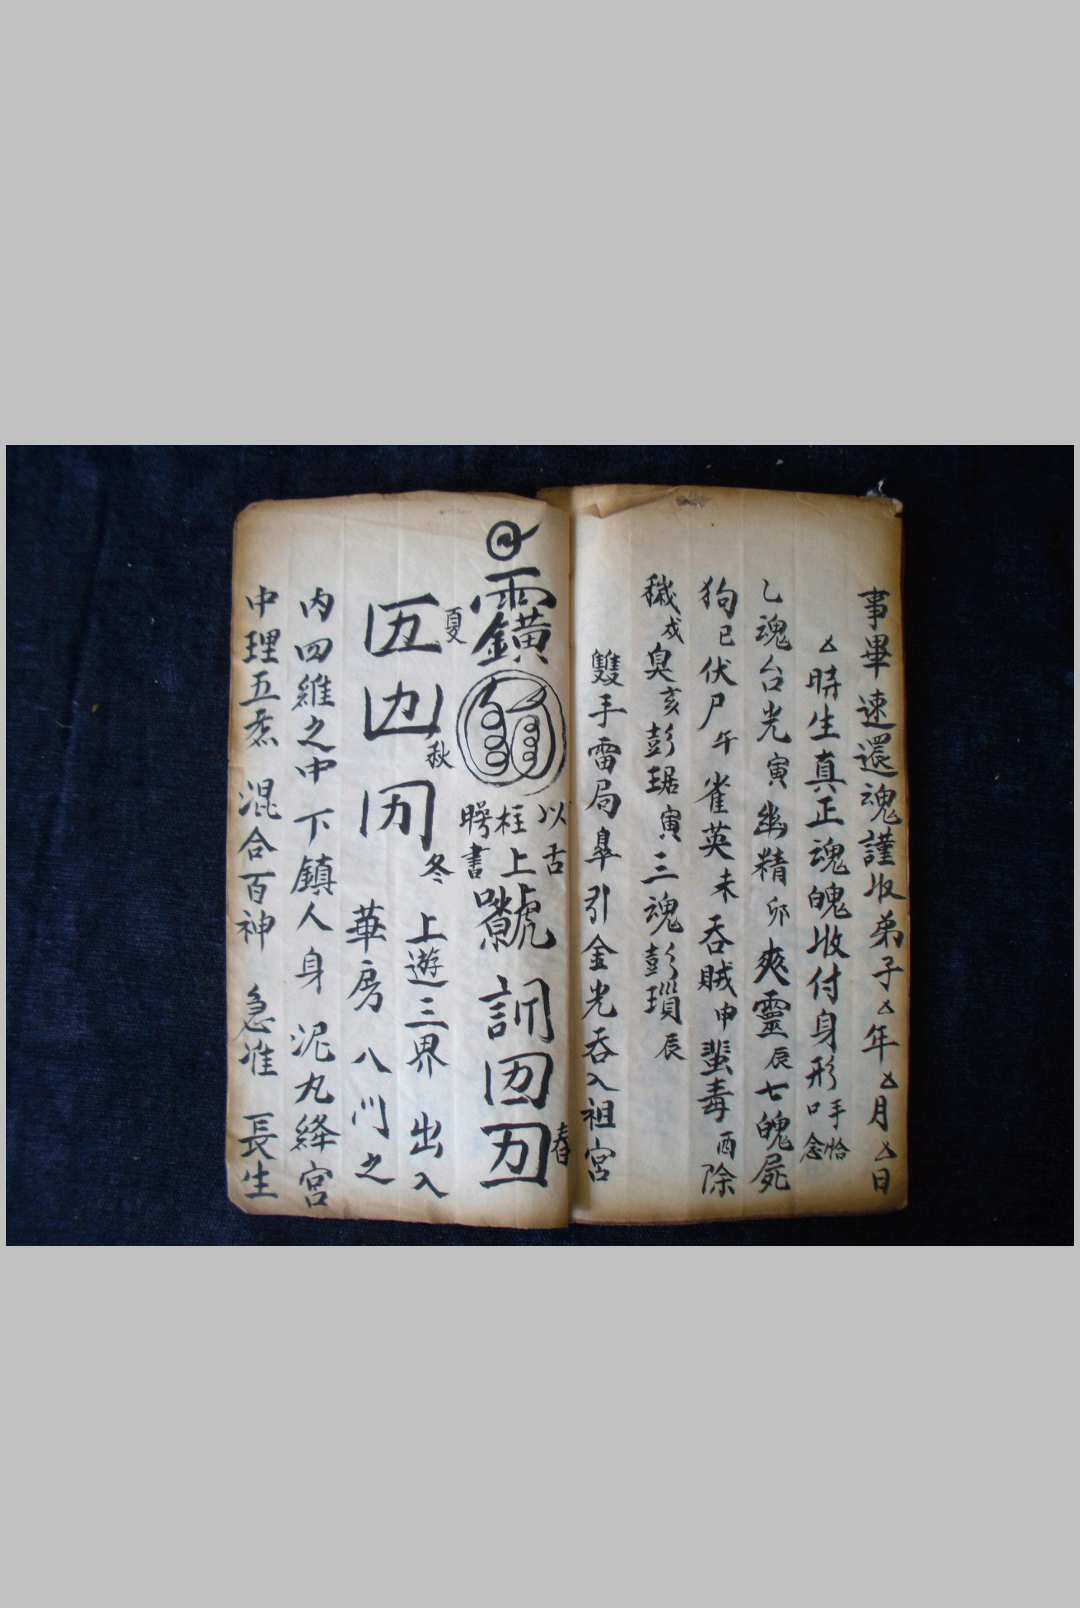 事畢速還魂謹收弟子厶年厶月厶日
厶時生真正魂魄收付身形手恰口念
乙魂台光寅幽精卯爽靈辰七魄屍
狗巳伏尸午雀英未吞賊申蜚毒酉除
穢戌臭亥彭琚寅三魂彭瓆辰
雙手雷局罩引金光吞入祖宮
以舌柱上腭書
春
夏
秋
冬
上遊三界出入
華房八門之
內四維之中下鎮人身泥丸絳宮
中理五炁混合百神急准長生